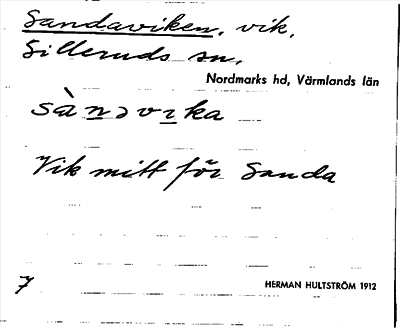 Sandaviken, vik,
Silleruds sn,
Nordmarks hd, Värmlands län
sà̀nəvika
Vik mitt för Sanda
7
HERMAN HULTSTRÖM 1912